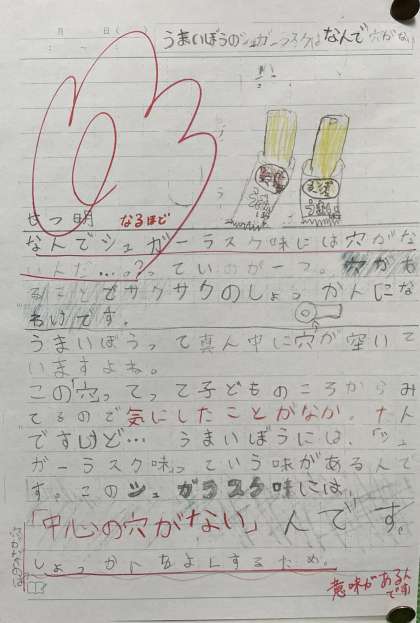 月 日( )
うまいぼうのシュガーラスクはなんで穴がない
せつ明 なるほど
なんでシュガーラスク味には穴がな
いんだ…。?っていのが一つ。穴があ
ることでサクサクのしょっかんにな
るいです。
うまいぼうって真ん中に穴が空いて
いますよね。
この「穴」って子どものころからみ
てるので気にしたことがなか。たん
ですけど… うまいぼうには、「シュ
ガーラスク味」っていう味があるんで
す。このシュガラスク味には
「中心の穴がない」んです。
しょっかんをよくするため。
意味があるんですね